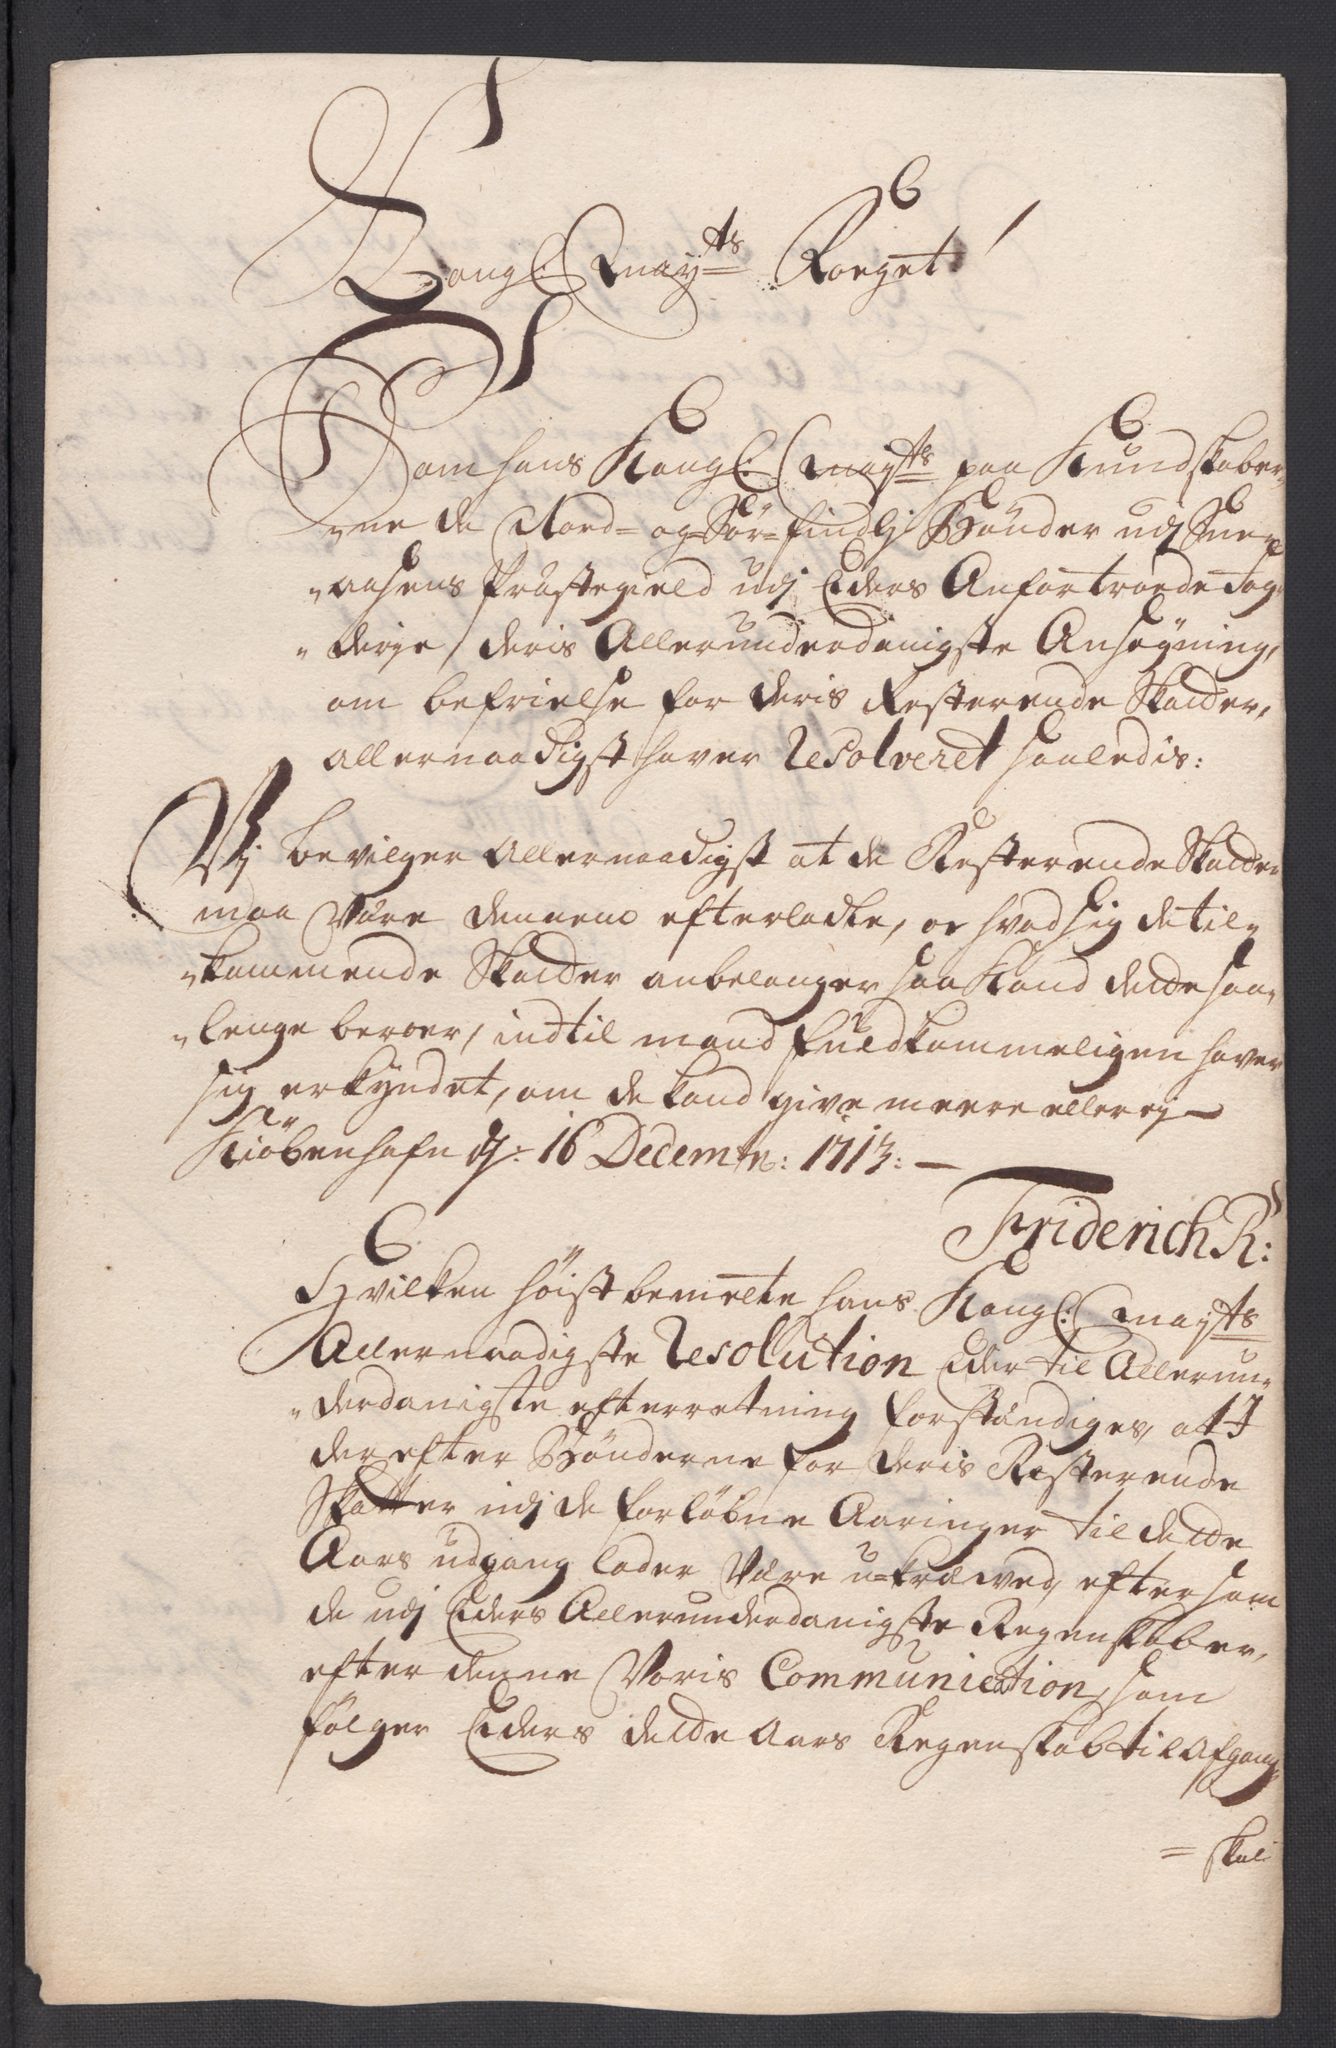 Kongl: May:ts Foeget!
Som hans Kongl: May:ts paa Kundskaber„
„ne de Nord= og=Sør=findlj Bønder udj Sne„
„aasens Præstegield udj Eders Anfortroede Fog„
„derje, deris Allerunderdanigste Ansøgning,
om befrielse for deris Resterende Skatter,
allernaadigst haver Resolveret saaledis:
Wj bevilger allernaadigst at de Resterende Skatter
maa være dennem efterladte, og hvad sig de til„
„kommende Skatter anbelanger saa Kand dette saa„
„lenge beroer, indtil mand fuldkommeligen haver
sig erkyndet, om de kand give meere eller ej
Kiöbenhafn d: 16 Decembr: 1713:
Friderich R:
Hvilken høistbemelte hans Kongl: May:ts
Allernaadigste Resolution Eder til Allerun„
„derdanigste efterretning forstændiges, at I
derefter Bønderne for deris Resterende
Skatter udj de forløbne Aaringer til dette
Aars udgang lader være u=kræwed, eftersom
de udj Eders Allerunderdanigste Regenskaber,
efter denne Voris Communication, som
følger Eders dette Aars Regenskab til Afgang
= skal